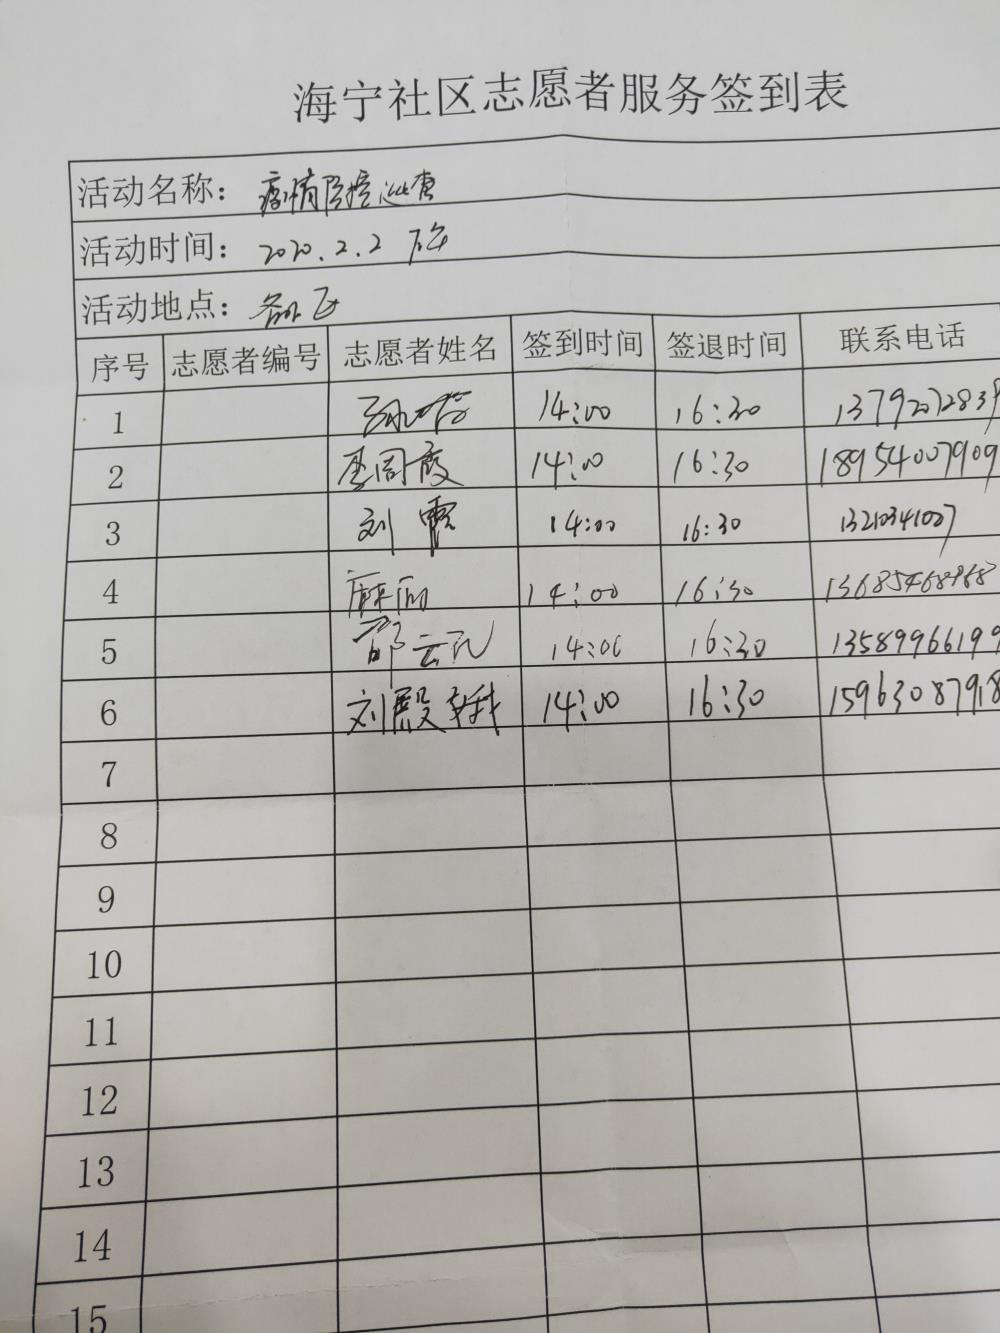 海宁社区志愿者服务签到表
活动名称：疫情防控巡查
活动时间：2020.2.2 下午
活动地点：各小区
序号 志愿者编号 志愿者姓名 签到时间 签退时间 联系电话
1 14:00 16:30 13792072839
2 14:00 16:30 18954007909
3 刘霞 14:00 16:30 13210341007
4 麻丽 14:00 16:30 13685468968
5 邵云飞 14:00 16:30 13589966199
6 刘殿 14:00 16:30 15963087918
7
8
9
10
11
12
13
14
15